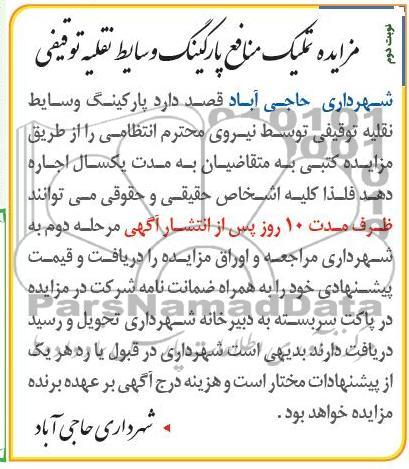 نوبت دوم
مزایده تملیک منافع پارکینگ وسایط نقلیه توقیفی
شهرداری حاجی آباد قصد دارد پارکینگ وسایط
نقلیه توقیفی توسط نیروی محترم انتظامی را از طریق
مزایده کتبی به متقاضیان به مدت یکسال اجاره
دهد فلذا کلیه اشخاص حقیقی و حقوقی می توانند
ظرف مدت ۱۰ روز پس از انتشار آگهی مرحله دوم به
شهرداری مراجعه و اوراق مزایده را دریافت و قیمت
پیشنهادی خود را به همراه ضمانت نامه شرکت در مزایده
در پاکت سربسته به دبیرخانه شهرداری تحویل و رسید
دریافت دارند بدیهی است شهرداری در قبول یا رد هر یک
از پیشنهادات مختار است و هزینه درج آگهی بر عهده برنده
مزایده خواهد بود .
شهرداری حاجی آباد
ParsNamadData